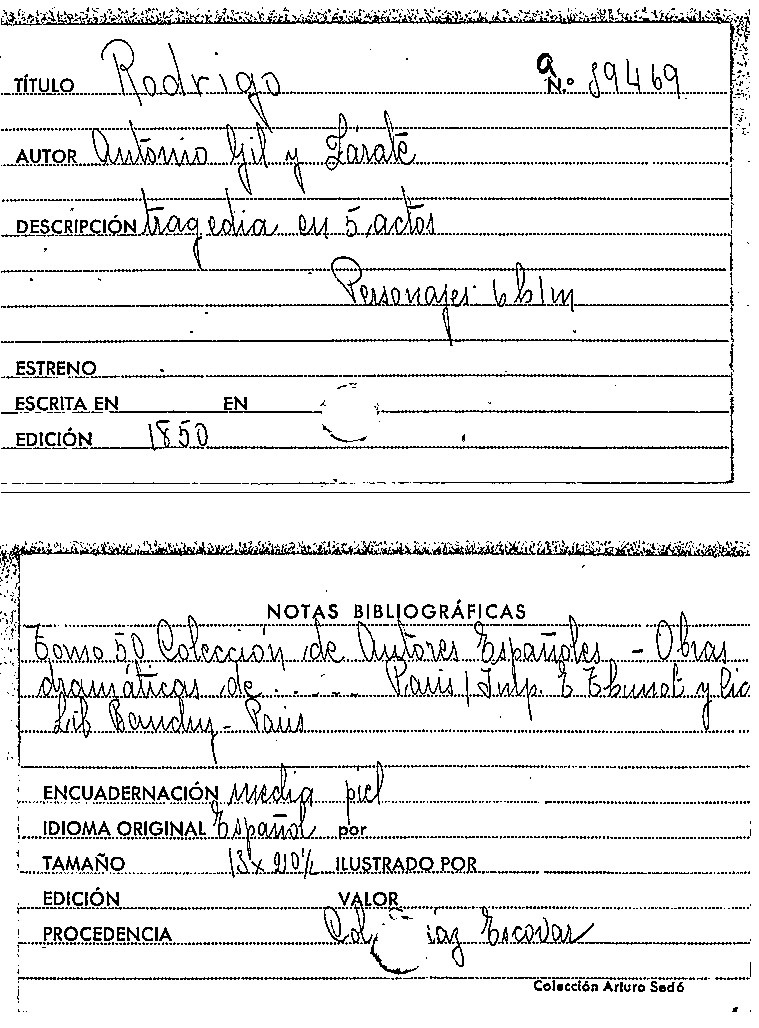 TÍTULO Rodrigo a N.º 89469
AUTOR Antonio Gil y Zárate
DESCRIPCIÓN tragedia en 5 actos
Personajes: 6 h 1 m
ESTRENO
ESCRITA EN EN
EDICIÓN 1850
NOTAS BIBLIOGRÁFICAS
Tomo 50 Colección de Autores Españoles - Obras
dramáticas de ..... Paris / Imp. E Thunot y Cia
Lib Baudry - Paris
ENCUADERNACIÓN media piel
IDIOMA ORIGINAL Español por
TAMAÑO ILUSTRADO POR
EDICIÓN VALOR
PROCEDENCIA Col iaz Escovar
Colección Arturo Sedó